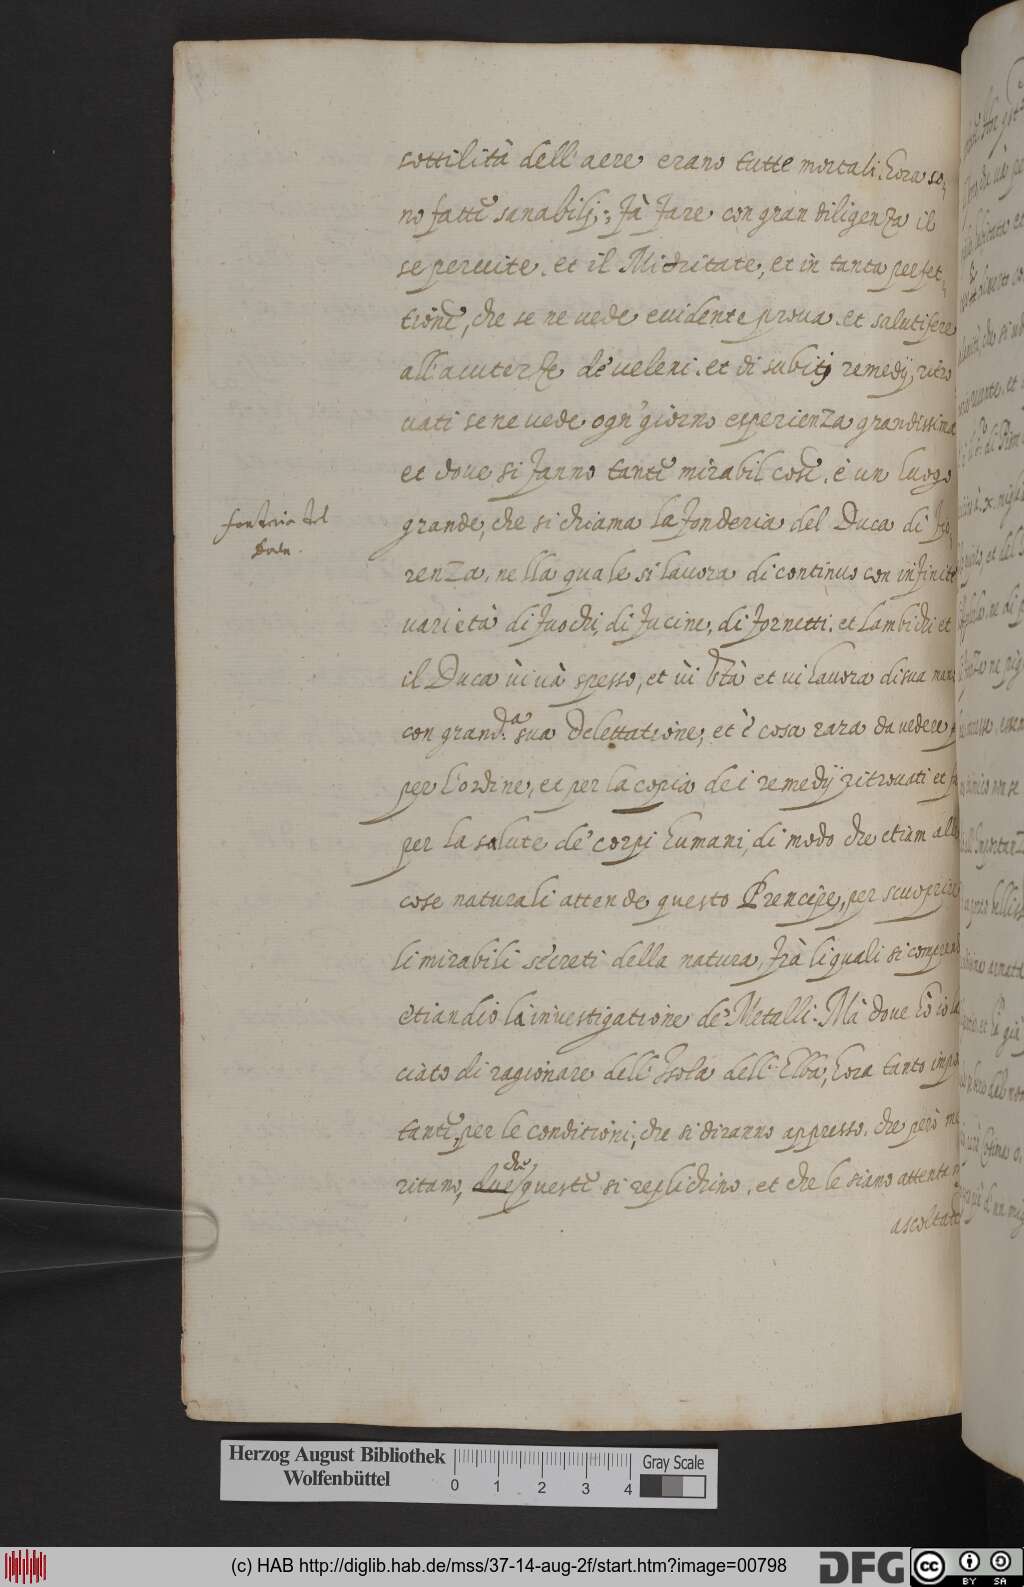 sottilità dell'aere erano tutte mortali, hora so-
no fatti sanabilj: Fà fare con gran diligenza il
se peruite, et il Mitritate, et in tanta perfet-
tione, che se ne vede euidente proua, et salutifere
all'acutezze de veleni, et di subitj remedij ritro
uati se ne vede ogn' giorno esperienza grandissima
et doue si fanno tante mirabil cose, è un luogo
fonderia del
Duca.
grande, che si chiama la fonderia del Duca di Fio-
renza, nella quale si lauora di continuo con infinite
varietà di fuochi, di fucine, di fornetti, et lambichi et
il Duca ui uà spesso, et ui stà et ui lauora di sua mano
con grand.a sua delettatione, et è cosa rara da vedere
per l'ordine, et per la copia dei remedij ritrouati et
per la salute de' corpi humani, di modo che etiam alle
cose naturali attende questo Prencipe, per scuoprire
li mirabili secreti della natura, frà li quali si comprend
etiandio la inuestigatione de' Metalli. Mà doue hò io la
ciato di ragionare dell'Isola dell'Elba, hora tanto impo
tante, per le conditioni, che si diranno appresso, che però me
ritano, due che queste si replichino, et che le siano attenta
ascoltate
Herzog August Bibliothek
Wolfenbüttel
0 1 2 3 4
Gray Scale
(c) HAB http://diglib.hab.de/mss/37-14-aug-2f/start.htm?image=00798
DFG
CC BY SA